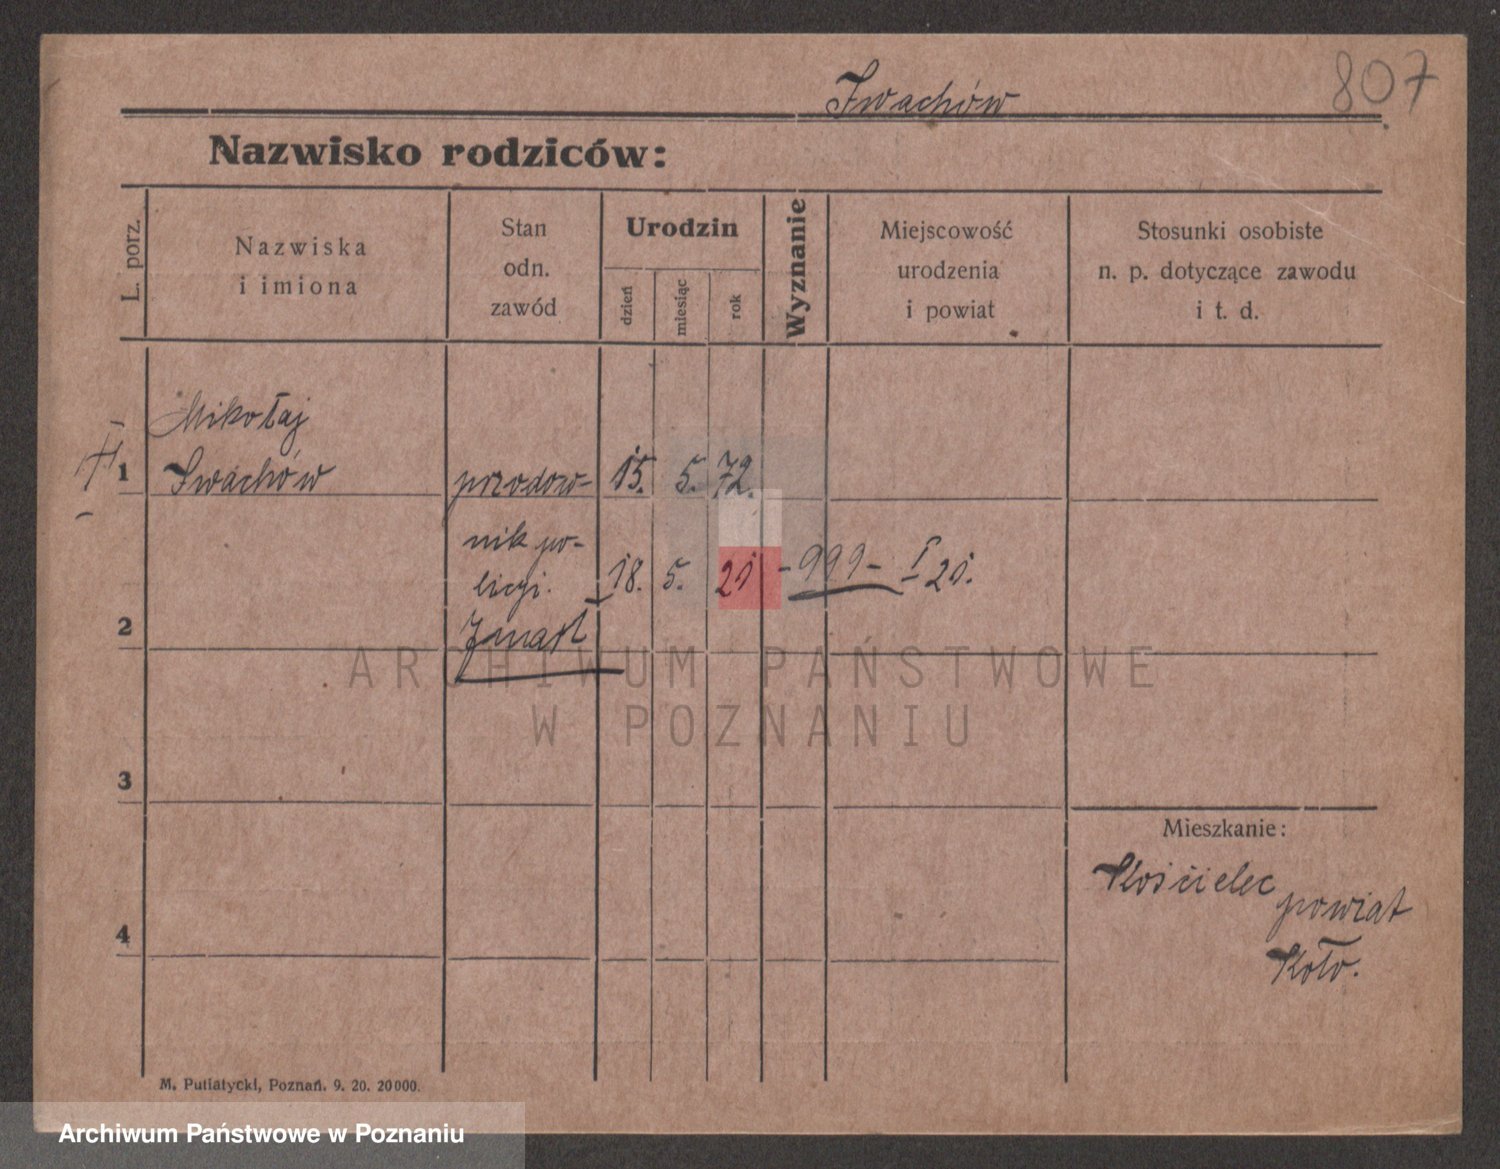 807
Iwachów
Nazwisko rodziców:
L. porz.
Nazwiska
i imiona
Stan
odn.
zawód
Urodzin
dzień
miesiąc
rok
Wyznanie
Miejscowość
urodzenia
i powiat
Stosunki osobiste
n. p. dotyczące zawodu
i t. d.
Mikołaj
1 Iwachów przodow- 15. 5. 72.
nik po-
licyi. 18. 5. 21 -999- I 21.
2 Zmarł
ARCHIWUM PAŃSTWOWE
W POZNANIU
3
Mieszkanie:
Kościelec
powiat
4
Koło.
M. Putiatycki, Poznań. 9. 20. 20000.
Archiwum Państwowe w Poznaniu